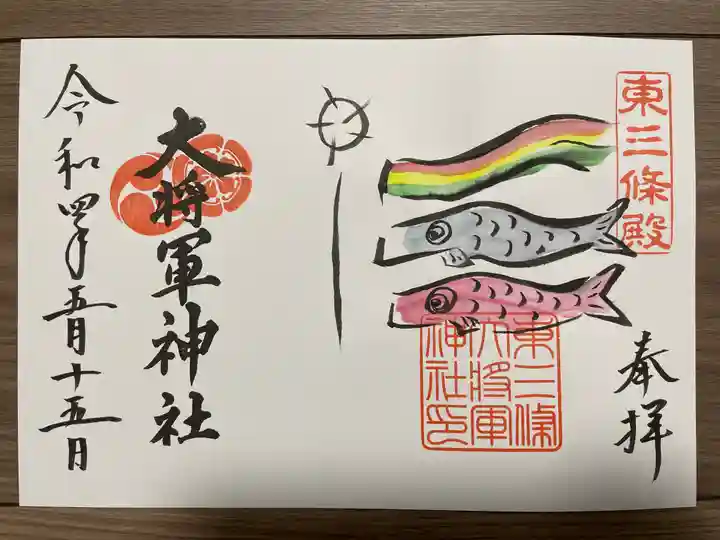 東三條殿
奉拝
東三條
大将軍
神社印
大将軍神社
令和四年五月十五日